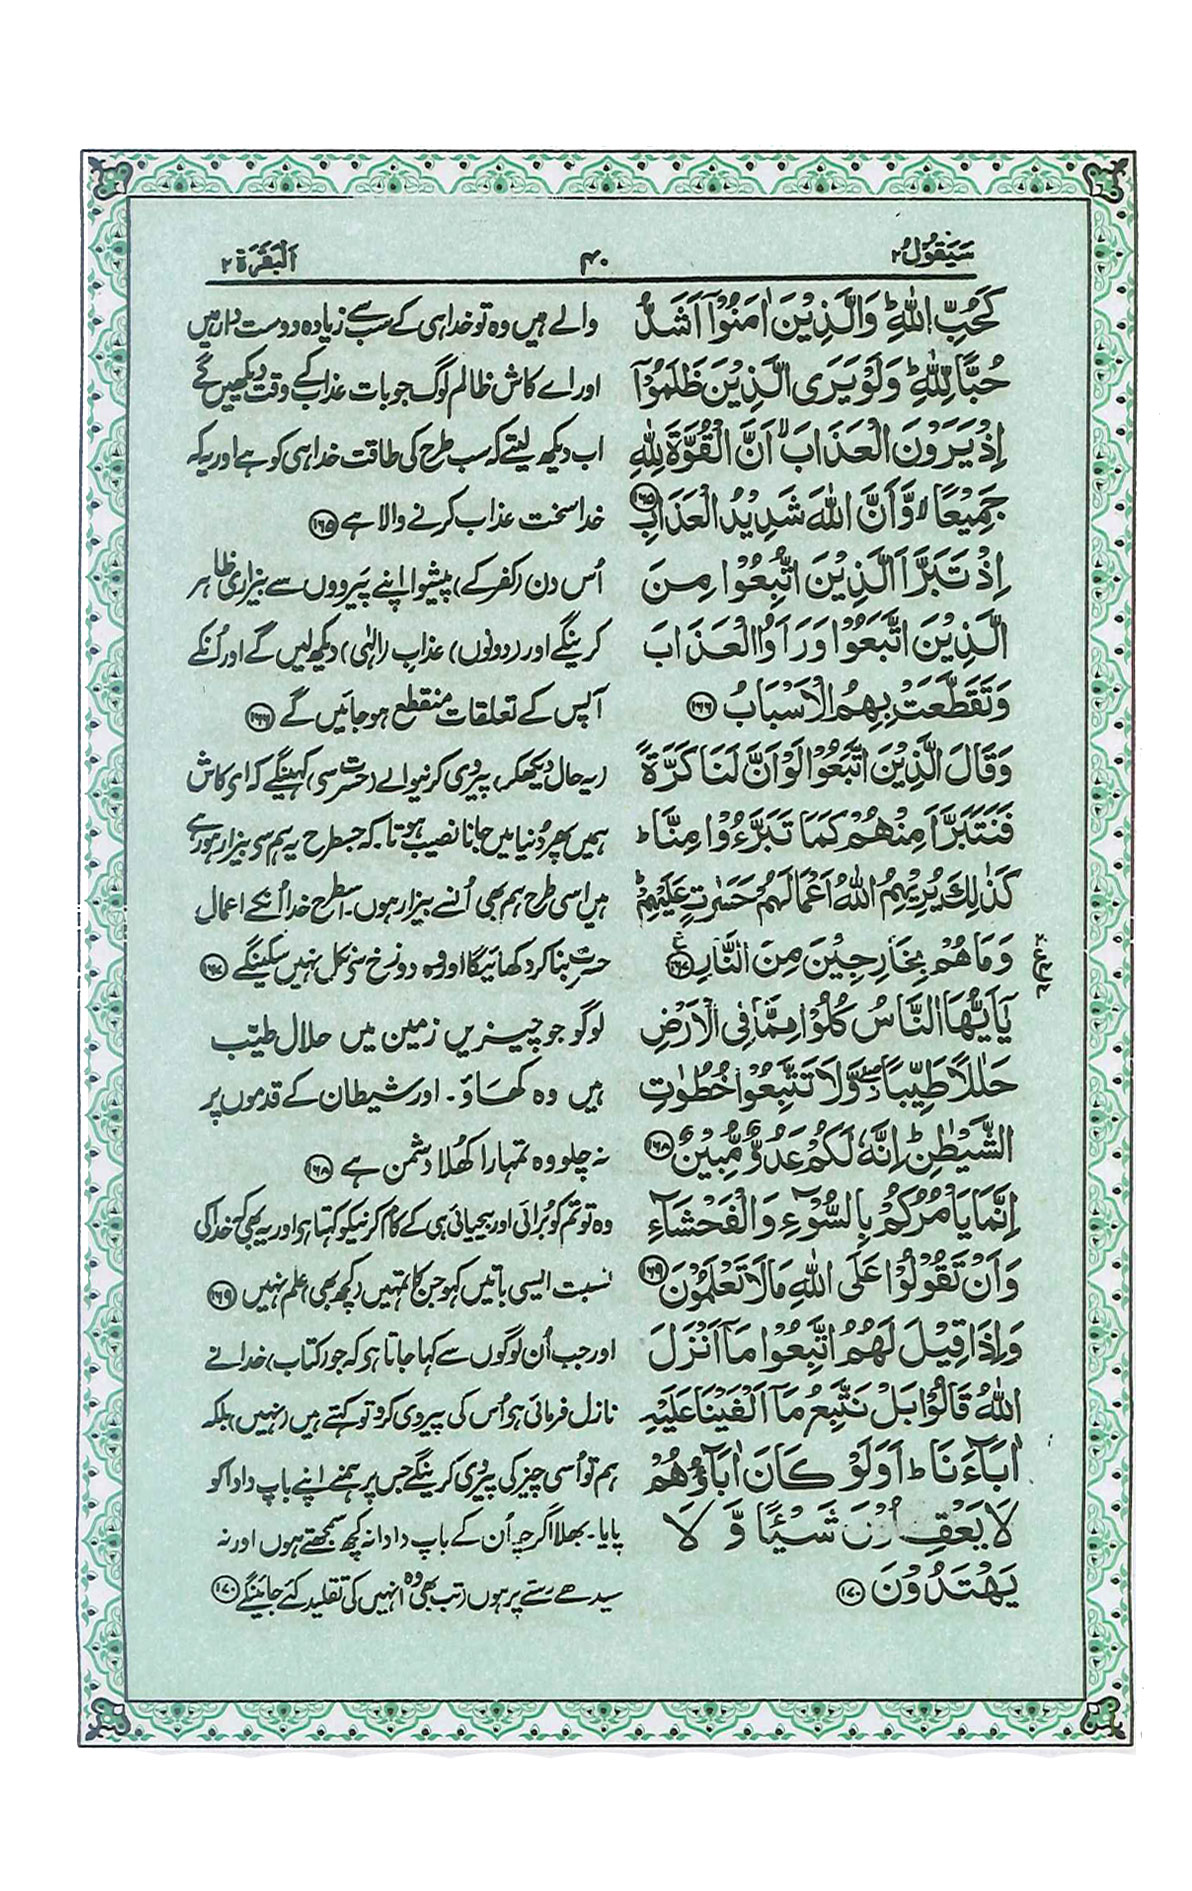 سَيَقُولُ ٢
٤٠
اَلْبَقَرَة ٢
كَحُبِّ اللّٰهِ ؕ وَالَّذِيْنَ اٰمَنُوْٓا اَشَدُّ
حُبًّا لِّلّٰهِ ؕ وَلَوْ يَرَى الَّذِيْنَ ظَلَمُوْٓا
اِذْ يَرَوْنَ الْعَذَابَ ۙ اَنَّ الْقُوَّةَ لِلّٰهِ
جَمِيْعًا ۙ وَّاَنَّ اللّٰهَ شَدِيْدُ الْعَذَابِ ١٦٥
اِذْ تَبَرَّاَ الَّذِيْنَ اتُّبِعُوْا مِنَ
الَّذِيْنَ اتَّبَعُوْا وَرَاَوُا الْعَذَابَ
وَتَقَطَّعَتْ بِهِمُ الْاَسْبَابُ ١٦٦
وَقَالَ الَّذِيْنَ اتَّبَعُوْا لَوْ اَنَّ لَنَا كَرَّةً
فَنَتَبَرَّاَ مِنْهُمْ كَمَا تَبَرَّءُوْا مِنَّا ؕ
كَذٰلِكَ يُرِيْهِمُ اللّٰهُ اَعْمَالَهُمْ حَسَرٰتٍ عَلَيْهِمْ ؕ
وَمَا هُمْ بِخَارِجِيْنَ مِنَ النَّارِ ١٦٧ ع
يٰٓاَيُّهَا النَّاسُ كُلُوْا مِمَّا فِى الْاَرْضِ
حَلٰلًا طَيِّبًا ۖ وَّلَا تَتَّبِعُوْا خُطُوٰتِ
الشَّيْطٰنِ ؕ اِنَّهٗ لَكُمْ عَدُوٌّ مُّبِيْنٌ ١٦٨
اِنَّمَا يَاْمُرُكُمْ بِالسُّوْٓءِ وَالْفَحْشَآءِ
وَاَنْ تَقُوْلُوْا عَلَى اللّٰهِ مَا لَا تَعْلَمُوْنَ ١٦٩
وَاِذَا قِيْلَ لَهُمُ اتَّبِعُوْا مَآ اَنْزَلَ
اللّٰهُ قَالُوْا بَلْ نَتَّبِعُ مَآ اَلْفَيْنَا عَلَيْهِ
اٰبَآءَنَا ؕ اَوَلَوْ كَانَ اٰبَآؤُهُمْ
لَا يَعْقِلُوْنَ شَيْئًا وَّ لَا
يَهْتَدُوْنَ ١٧٠
والے ہیں وہ تو خدا ہی کے سب سے زیادہ دوستدار ہیں
اور اے کاش ظالم لوگ جو بات عذاب کے وقت دیکھیں گے
اب دیکھ لیتے کہ سب طرح کی طاقت خدا ہی کو ہے اور یہ کہ
خدا سخت عذاب کرنے والا ہے ١٦٥
اُس دن (کفر کے) پیشوا اپنے پیرووں سے بیزاری ظاہر
کرینگے اور (دونوں) عذابِ (الٰہی) دیکھ لیں گے اور اُنکے
آپس کے تعلقات منقطع ہو جائیں گے ١٦٦
(یہ حال دیکھکر) پیروی کرنیوالے (حسرت سی) کہینگے کہ ای کاش
ہمیں پھر دُنیا میں جانا نصیب ہوتا۔ کہ جسطرح یہ ہم سی بیزار ہورہے
ہیں اسی طرح ہم بھی اُنسے بیزار ہوں۔ اسطرح خدا اُنکے اعمال
حسرت بنا کر دکھائیگا اور وہ دوزخ سی نکل نہیں سکینگے ١٦٧
لوگو جو چیزیں زمین میں حلال طیّب
ہیں وہ کھاؤ۔ اور شیطان کے قدموں پر
نہ چلو وہ تمہارا کھُلا دشمن ہے ١٦٨
وہ تو تم کو بُرائی اور بیحیائی ہی کے کام کرنیکو کہتا ہی اور یہ بھی کہ خدا کی
نسبت ایسی باتیں کہو جن کا تمہیں (کچھ بھی) علم نہیں ١٦٩
اور جب اُن لوگوں سے کہا جاتا ہی کہ جو (کتاب) خدا نے
نازل فرمائی ہی اُس کی پیروی کرو تو کہتے ہیں (نہیں) بلکہ
ہم تو اُسی چیز کی پیروی کرینگے جس پر ہمنے اپنے باپ دادا کو
پایا۔ بھلا اگرچہ اُن کے باپ دادا نہ کچھ سمجھتے ہوں اور نہ
سیدھے رستے پر ہوں (تب بھی وہ انہیں کی تقلید کئے جائینگے) ١٧٠